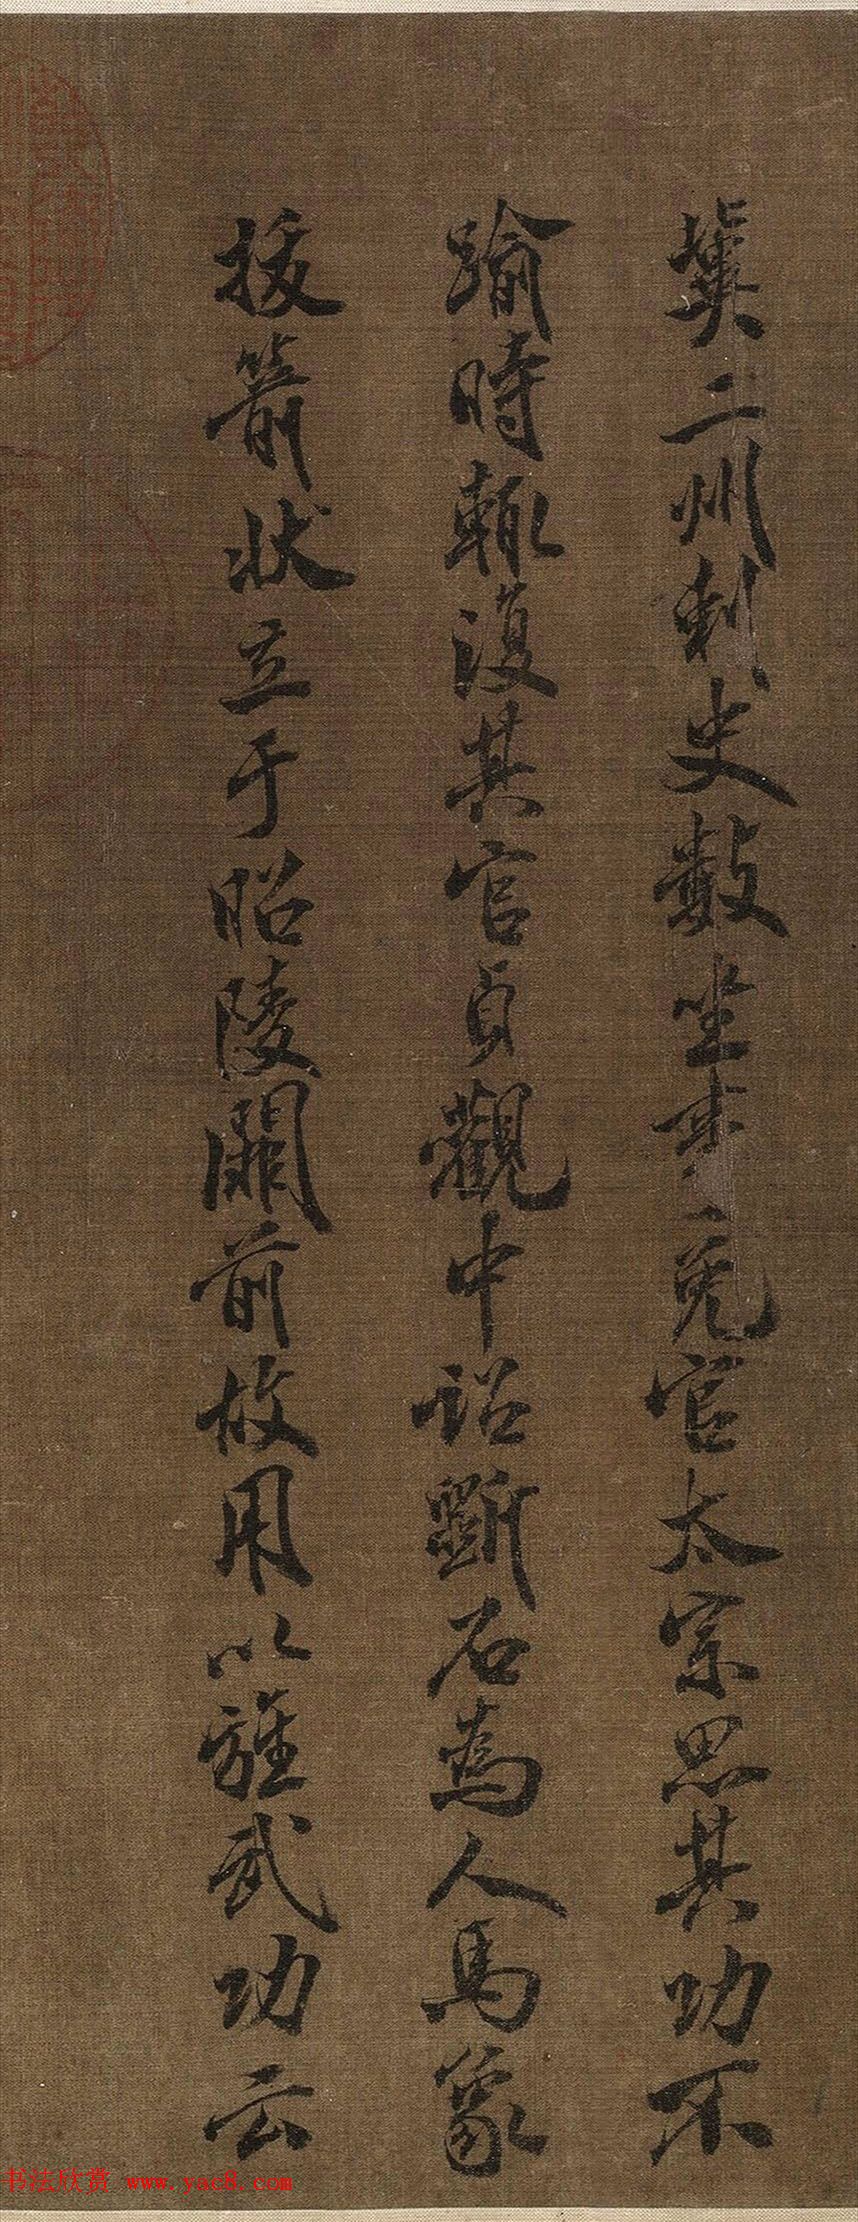 冀二州刺史數坐事免官太宗思其功不
踰時輒復其官貞觀中詔斲石為人馬象
拔箭狀立于昭陵闕前故用以旌武功云
书法欣赏 www.yac8.com